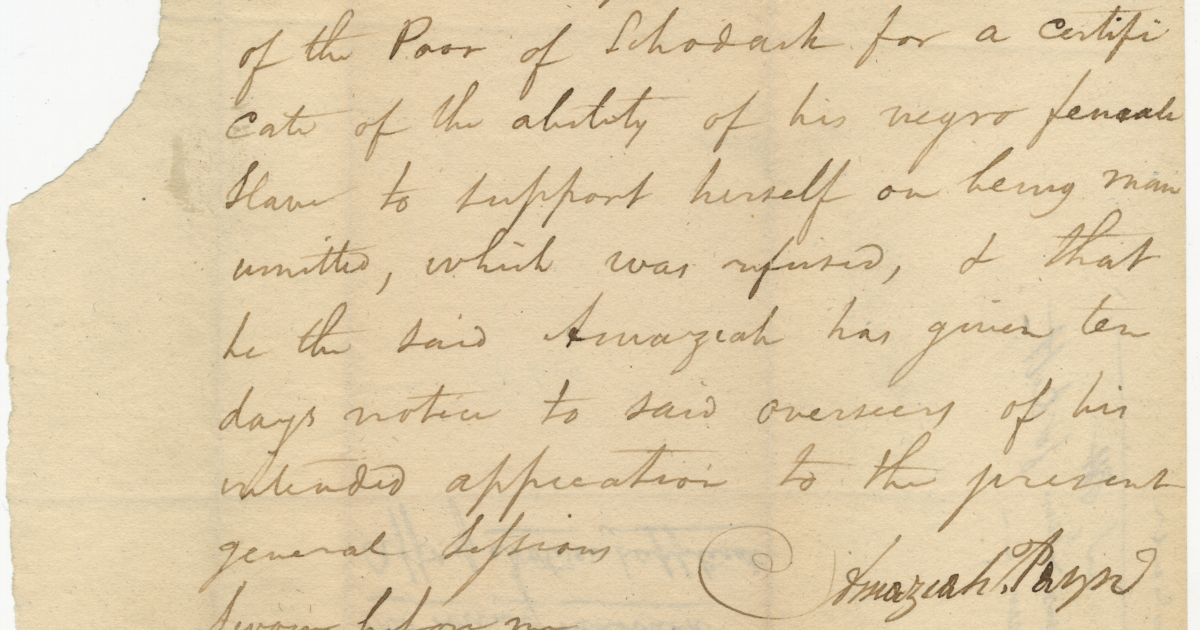 of the Poor of Schodack for a Certifi
cate of the ability of his negro female
Slave to support herself on being man
umitted, which was refused, & that
he the said Amaziah has given ten
days notice to said overseers of his
intended application to the present
general Sessions
Amaziah Payn
Sworn before me